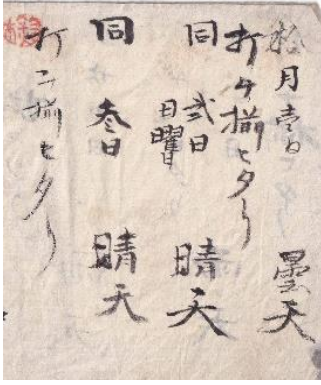 拾月壱日 曇天
打々揃ヒタリ
同 弐日 日曜日 晴天
同 叁日 晴天
打々揃ヒタリ